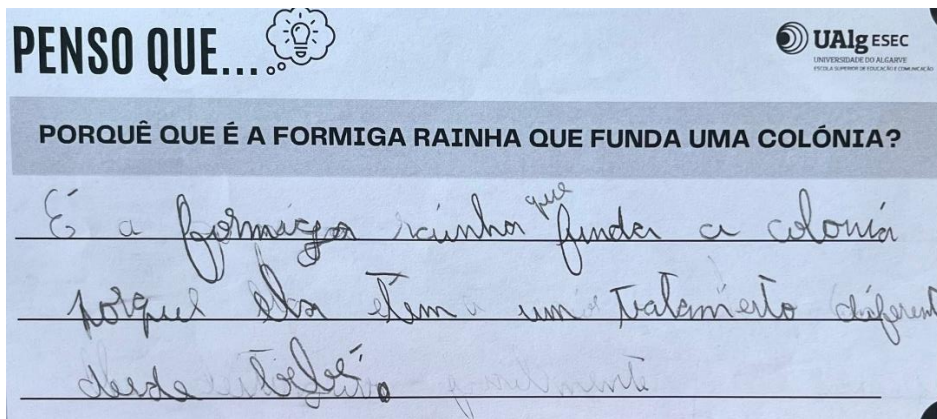 PENSO QUE...
UAlg ESEC
UNIVERSIDADE DO ALGARVE
ESCOLA SUPERIOR DE EDUCAÇÃO E COMUNICAÇÃO
PORQUÊ QUE É A FORMIGA RAINHA QUE FUNDA UMA COLÓNIA?
É a formiga rainha que funda a colonia
porque ela tem um tratamento diferent
desde bebé.